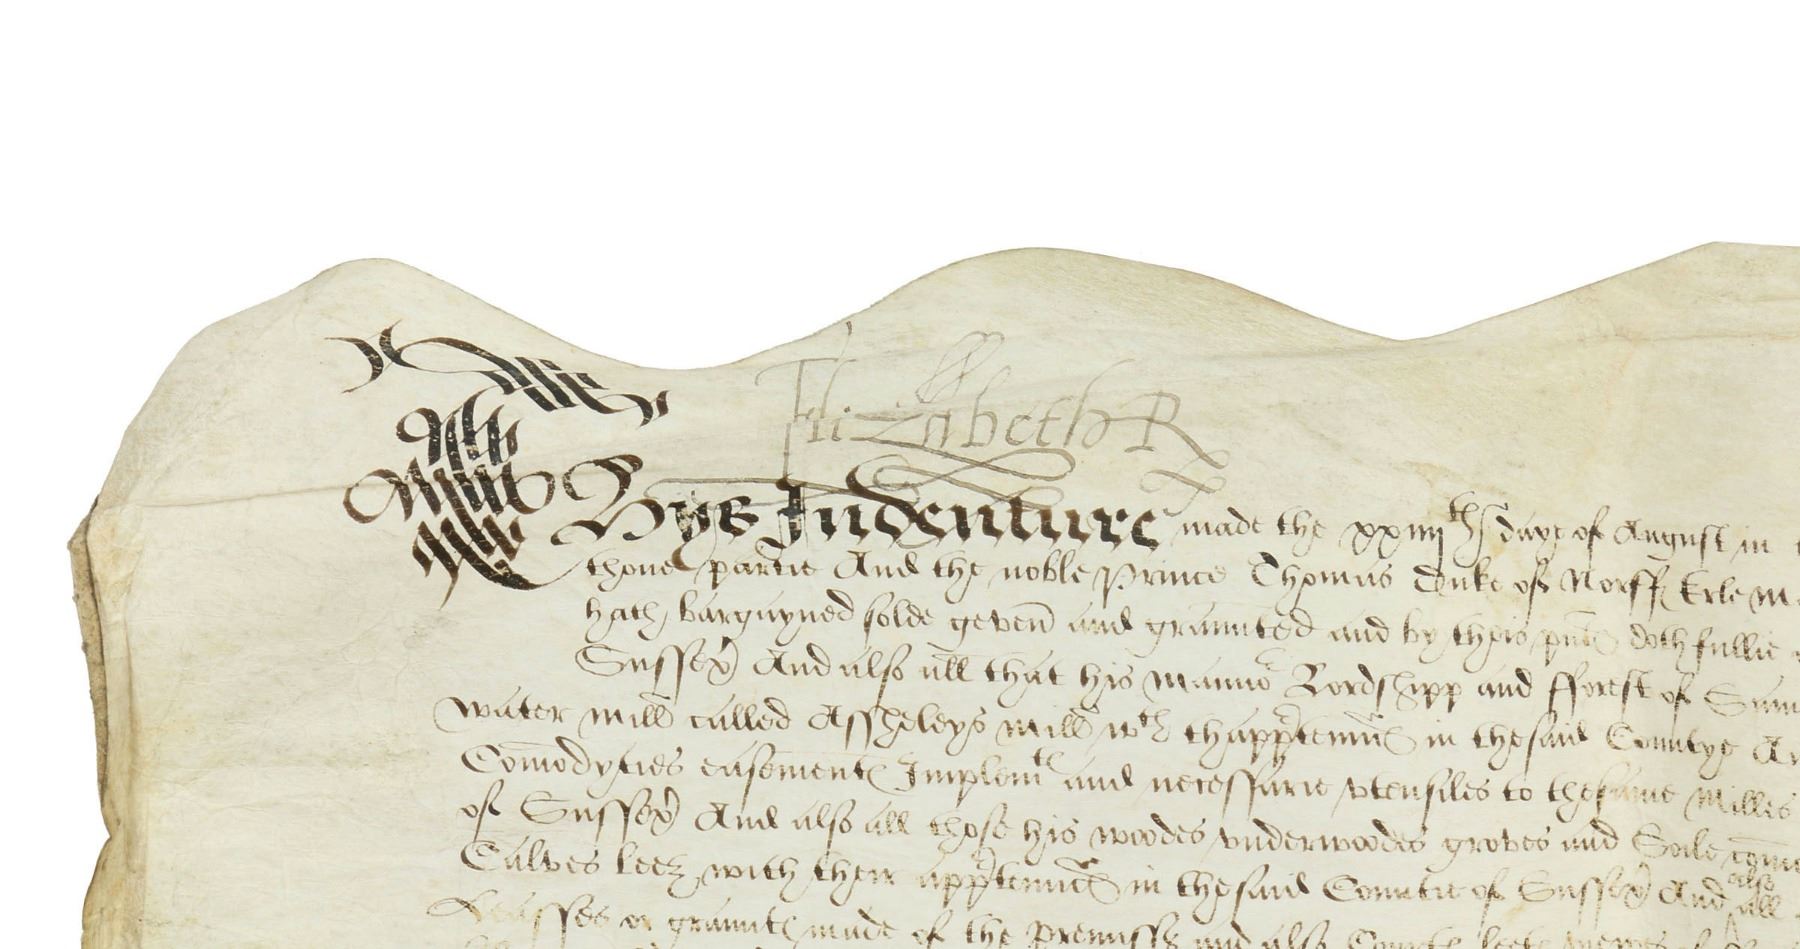 Elizabeth R
Thys Indenture made the xxiiijth daye of August in
thone partie And the noble Prince Thomas Duke of Norff Erle M
hath bargayned solde geven and graunted and by theis pnts doth fullie
Sussex And also all that his manno Lordshipp and fforest of
water mill called Assheleys mill wth thapptennces in the said Countye
Comodyties easements Implemts and necessarie vtensiles to the same milles
of Sussex And also all those his woodes vnderwoodes groves and Soile
Calves leez with their apptennces in the said Countie of Sussex And also all
Leasses or graunts made of the premisses and also